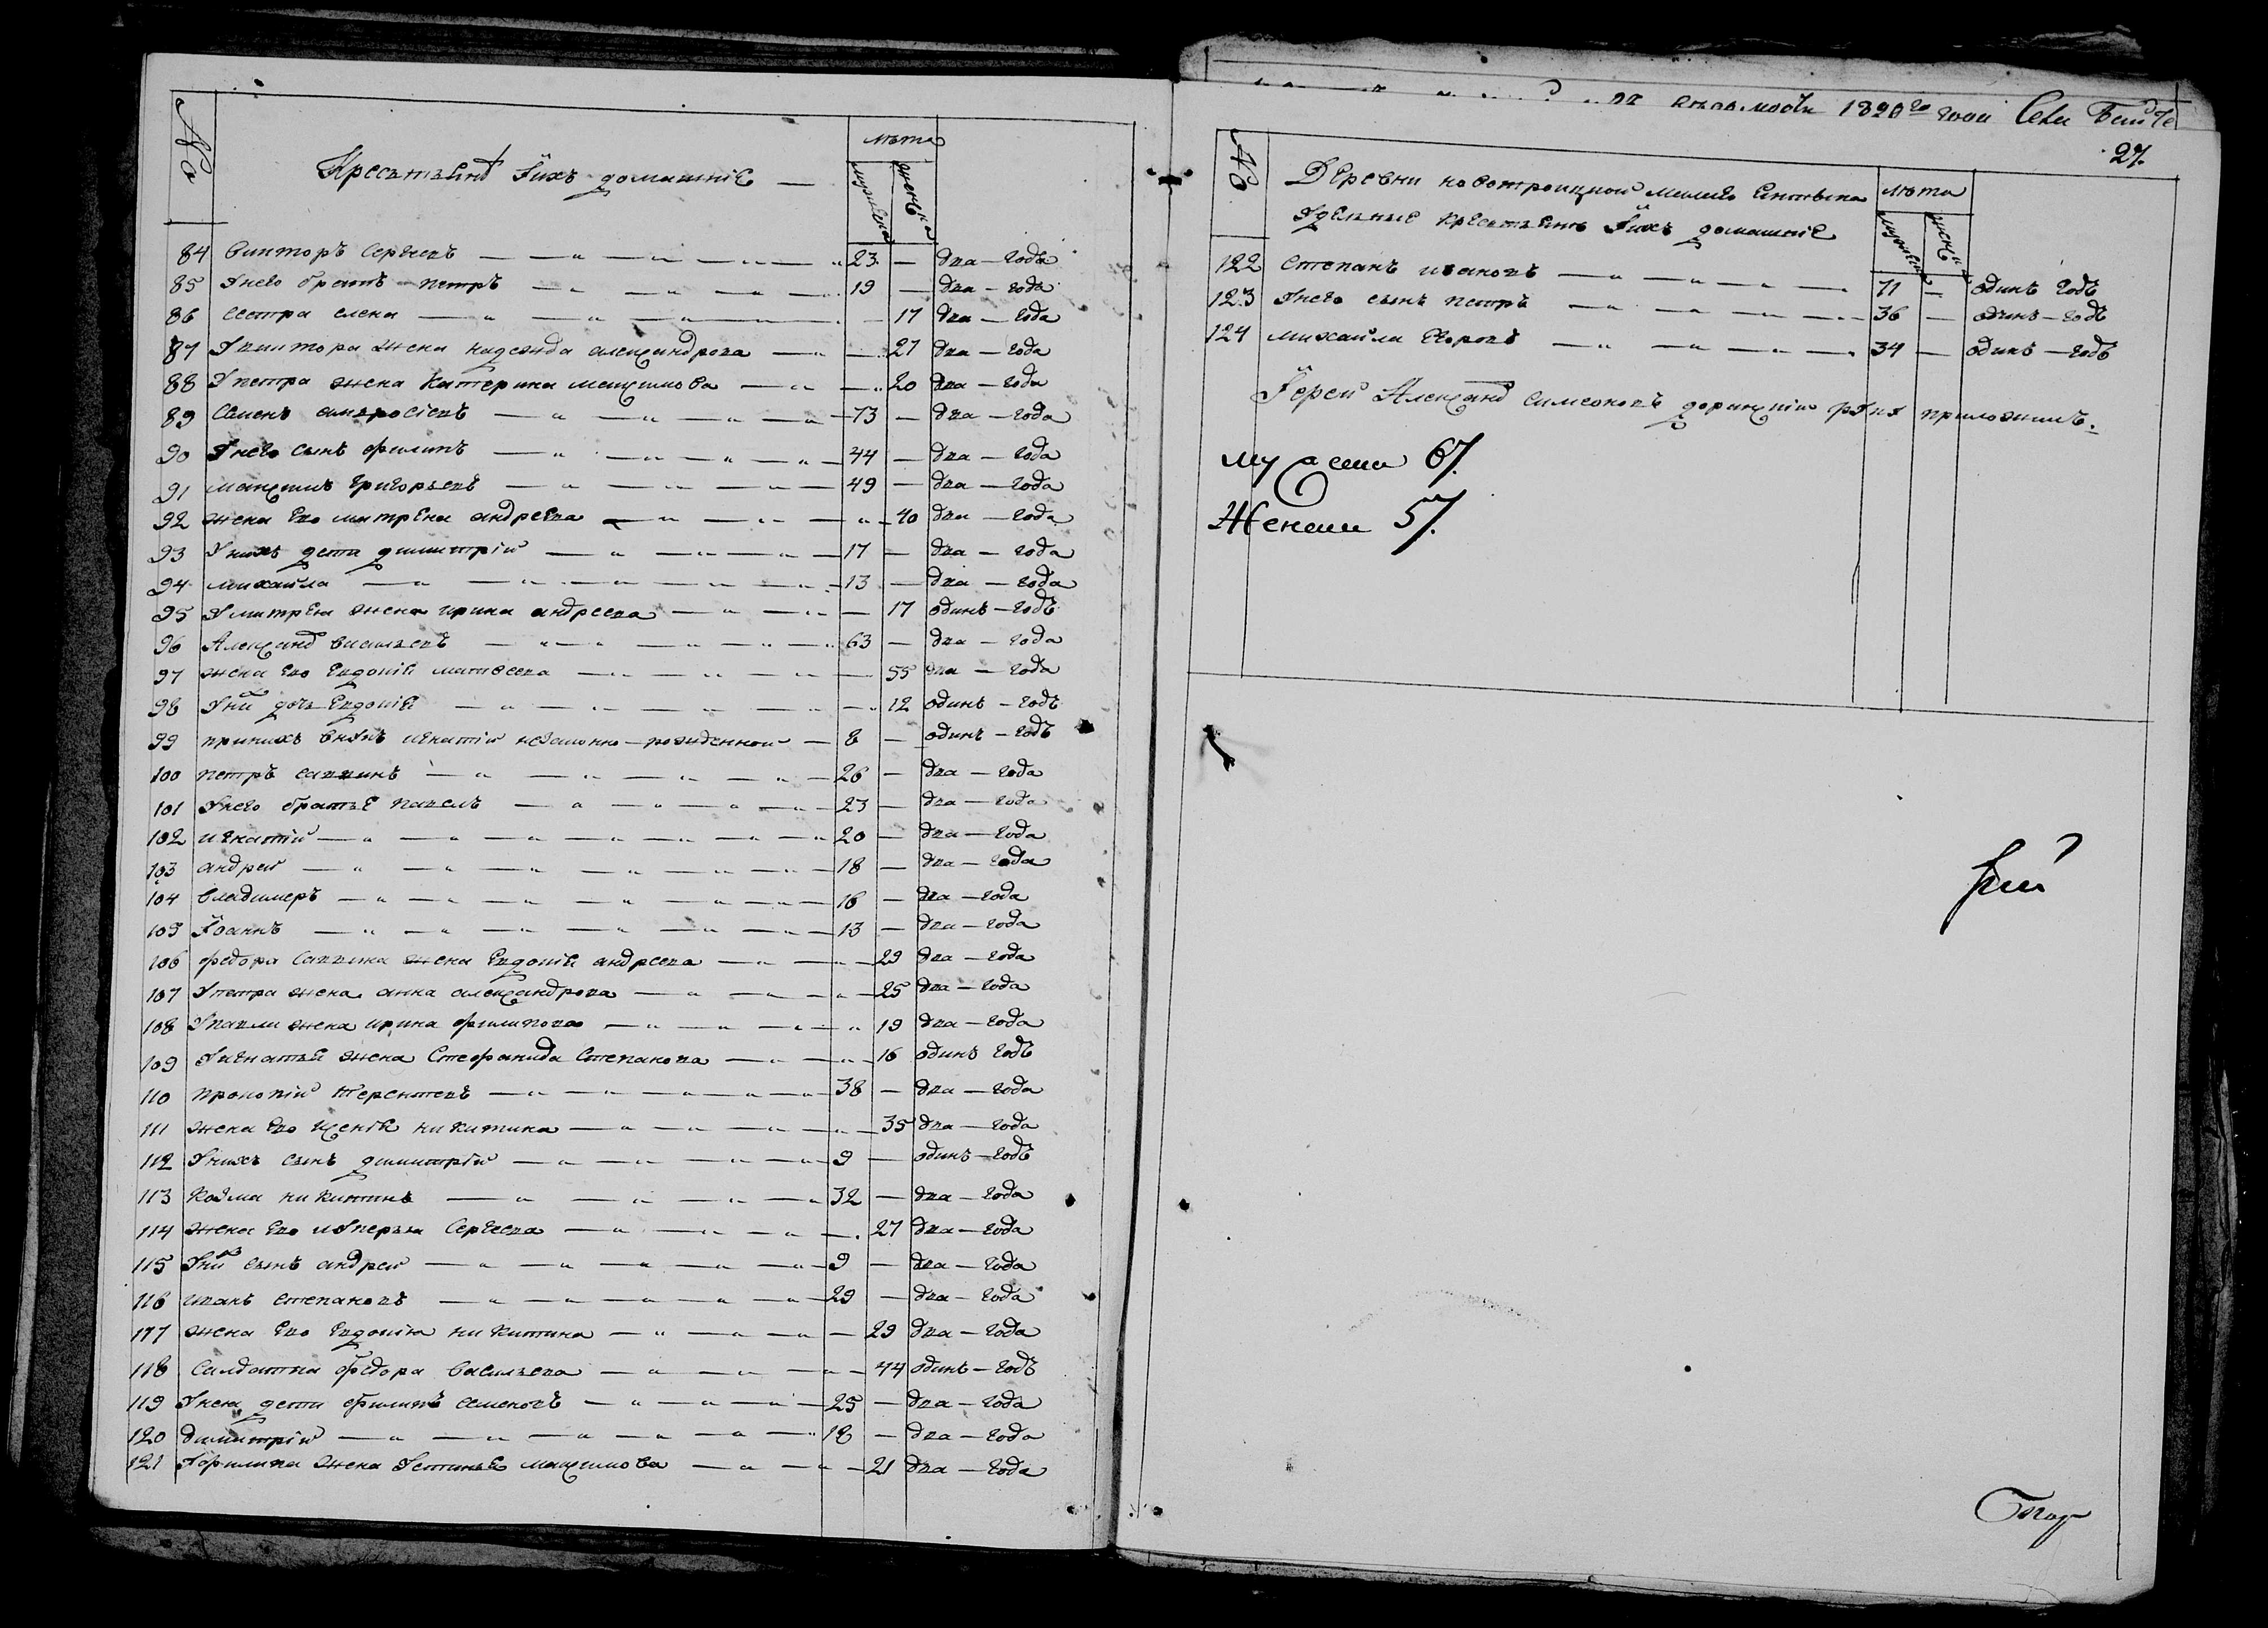 № Кресътьянѣ Їихъ домашнїе лѣта
мужеска женска
84 викторъ Сергеевъ 23 — два — года
85 Унего братъ петръ 19 — два — года
86 сестра елена — 17 два — года
87 Увиктора жена надежда александрова — 27 два — года
88 Упетра жена катерина максимова — 20 два — года
89 Семенъ амвросїевъ 73 — два — года
90 Унего сынъ филипъ 44 — два — года
91 максимъ григорьевъ 49 — два — года
92 жена Ево матрена андреева 40 два — года
93 Унихъ дети димитрїи 17 — два — года
94 михаила 13 — два — года
95 Умитрея жена ирина андреева — 17 одинъ — годъ
96 Александ васильевъ 63 — два — года
97 жена Ево Евдокїя матвеева — 55 два — года
98 Уних дочь Евдокїя — 12 одинъ — годъ
99 принихъ внукъ игнатїи незаконно — рожденнои — 8 — одинъ — годъ
100 петръ саввинъ 26 — два — года
101 Унего братье павелъ 23 — два — года
102 игнатїи 20 — два — года
103 андреи 18 — два — года
104 владимеръ 16 — два — года
105 Їоаннъ 13 — два — года
106 федора саввина жена Евдокїя андреева — 29 два — года
107 Упетра жена анна александрова — 25 два — года
108 Упавла жена ирина филипова 19 два — года
109 Уигнатья жена Стефанида Степанова 16 одинъ годъ
110 прокопїи терентевъ 38 — два — года
111 жена Ево ксенїя никитина 35 два — года
112 Унихъ сынъ димитрїи 9 — одинъ — годъ
113 козма никитинъ 32 — два — года
114 жена Ево Сергеева 27 два — года
115 Уних сынъ андреи 9 — два — года
116 иванъ степановъ 29 — два — года
117 жена Ево Евдокїя никитина — 29 два — года
118 салдатка федора васильева 44 одинъ — годъ
119 Унеи дети филипъ семеновъ 25 — два — года
120 димитрїи 18 — два — года
121 Уфилипа жена Устинья максимова 21 два — года
1820го года Села
27.
№ Деревни новотроицкои лѣта
Удельные кресьтьянѣ Їихъ домашнїе мужеска женска
122 степанъ ивановъ 71 — одинъ годъ
123 Унего сынъ петръ 36 — одинъ — годъ
124 михаила Егоровъ 34 — одинъ — годъ
Їереи Александ симеоновъ руку приложилъ.
мужеска 67.
Женска 57.